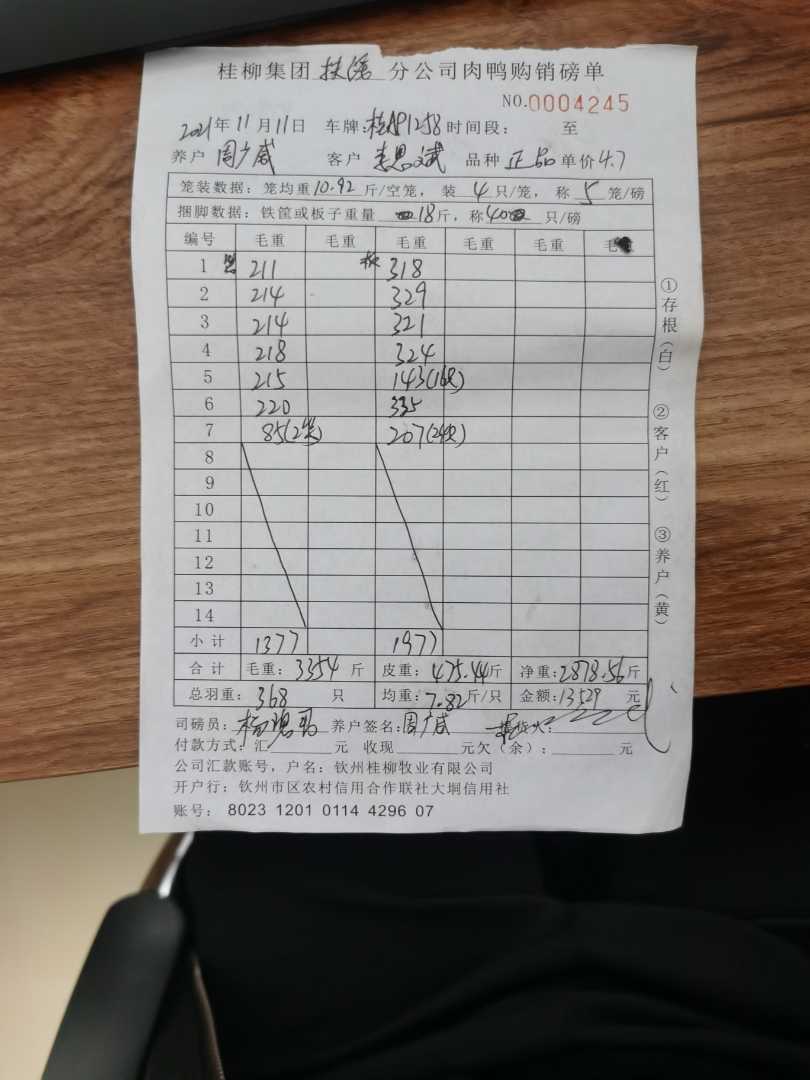 桂柳集团 扶绥 分公司肉鸭购销磅单
NO.0004245
2021年11月11日 车牌:桂AP1258 时间段: 至
养户 周广威 客户 李思斌 品种 正品 单价4.7
笼装数据:笼均重10.92斤/空笼,装4只/笼,称5笼/磅
捆脚数据:铁筐或板子重量18斤,称40只/磅
编号 毛重 毛重 毛重 毛重 毛重 毛
1 211 318
2 214 329
3 214 321
4 218 324
5 215 143(16只)
6 220 335
7 85(2笼) 207(24只)
8
9
10
11
12
13
14
小计 1377 1977
合计 毛重:3354斤 皮重:475.44斤 净重:2878.56斤
总羽重:368只 均重:7.82斤/只 金额:13529元
司磅员: 养户签名:周广威
付款方式:汇 元 收现 元欠(余): 元
公司汇款账号,户名:钦州桂柳牧业有限公司
开户行:钦州市区农村信用合作联社大垌信用社
账号:8023 1201 0114 4296 07
①存根(白) ②客户(红) ③养户(黄)